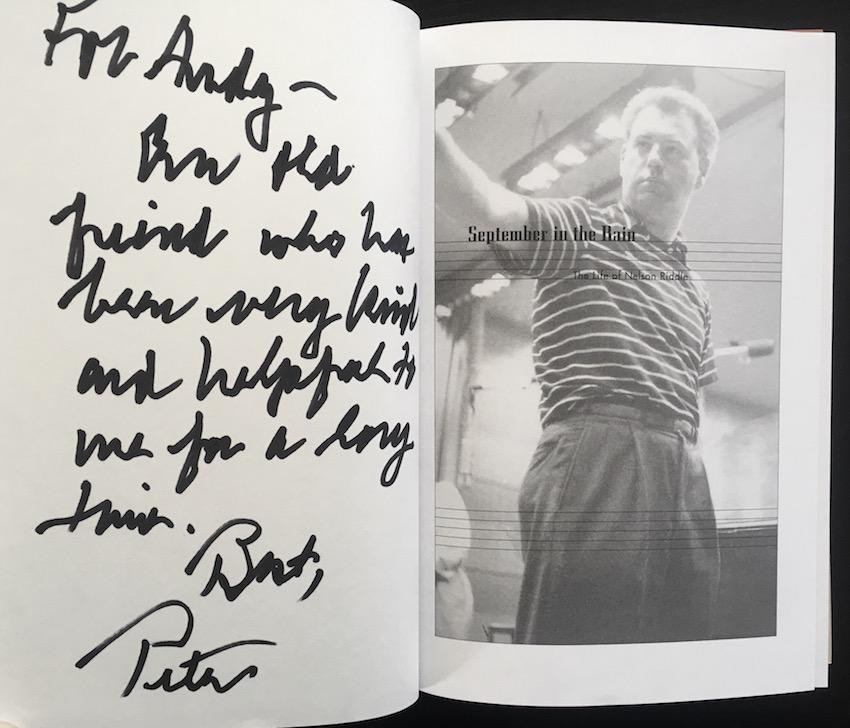 For Andy —
An old
friend who has
been very kind
and helpful to
me for a long
time.
Best,
Peter
September in the Rain
The Life of Nelson Riddle